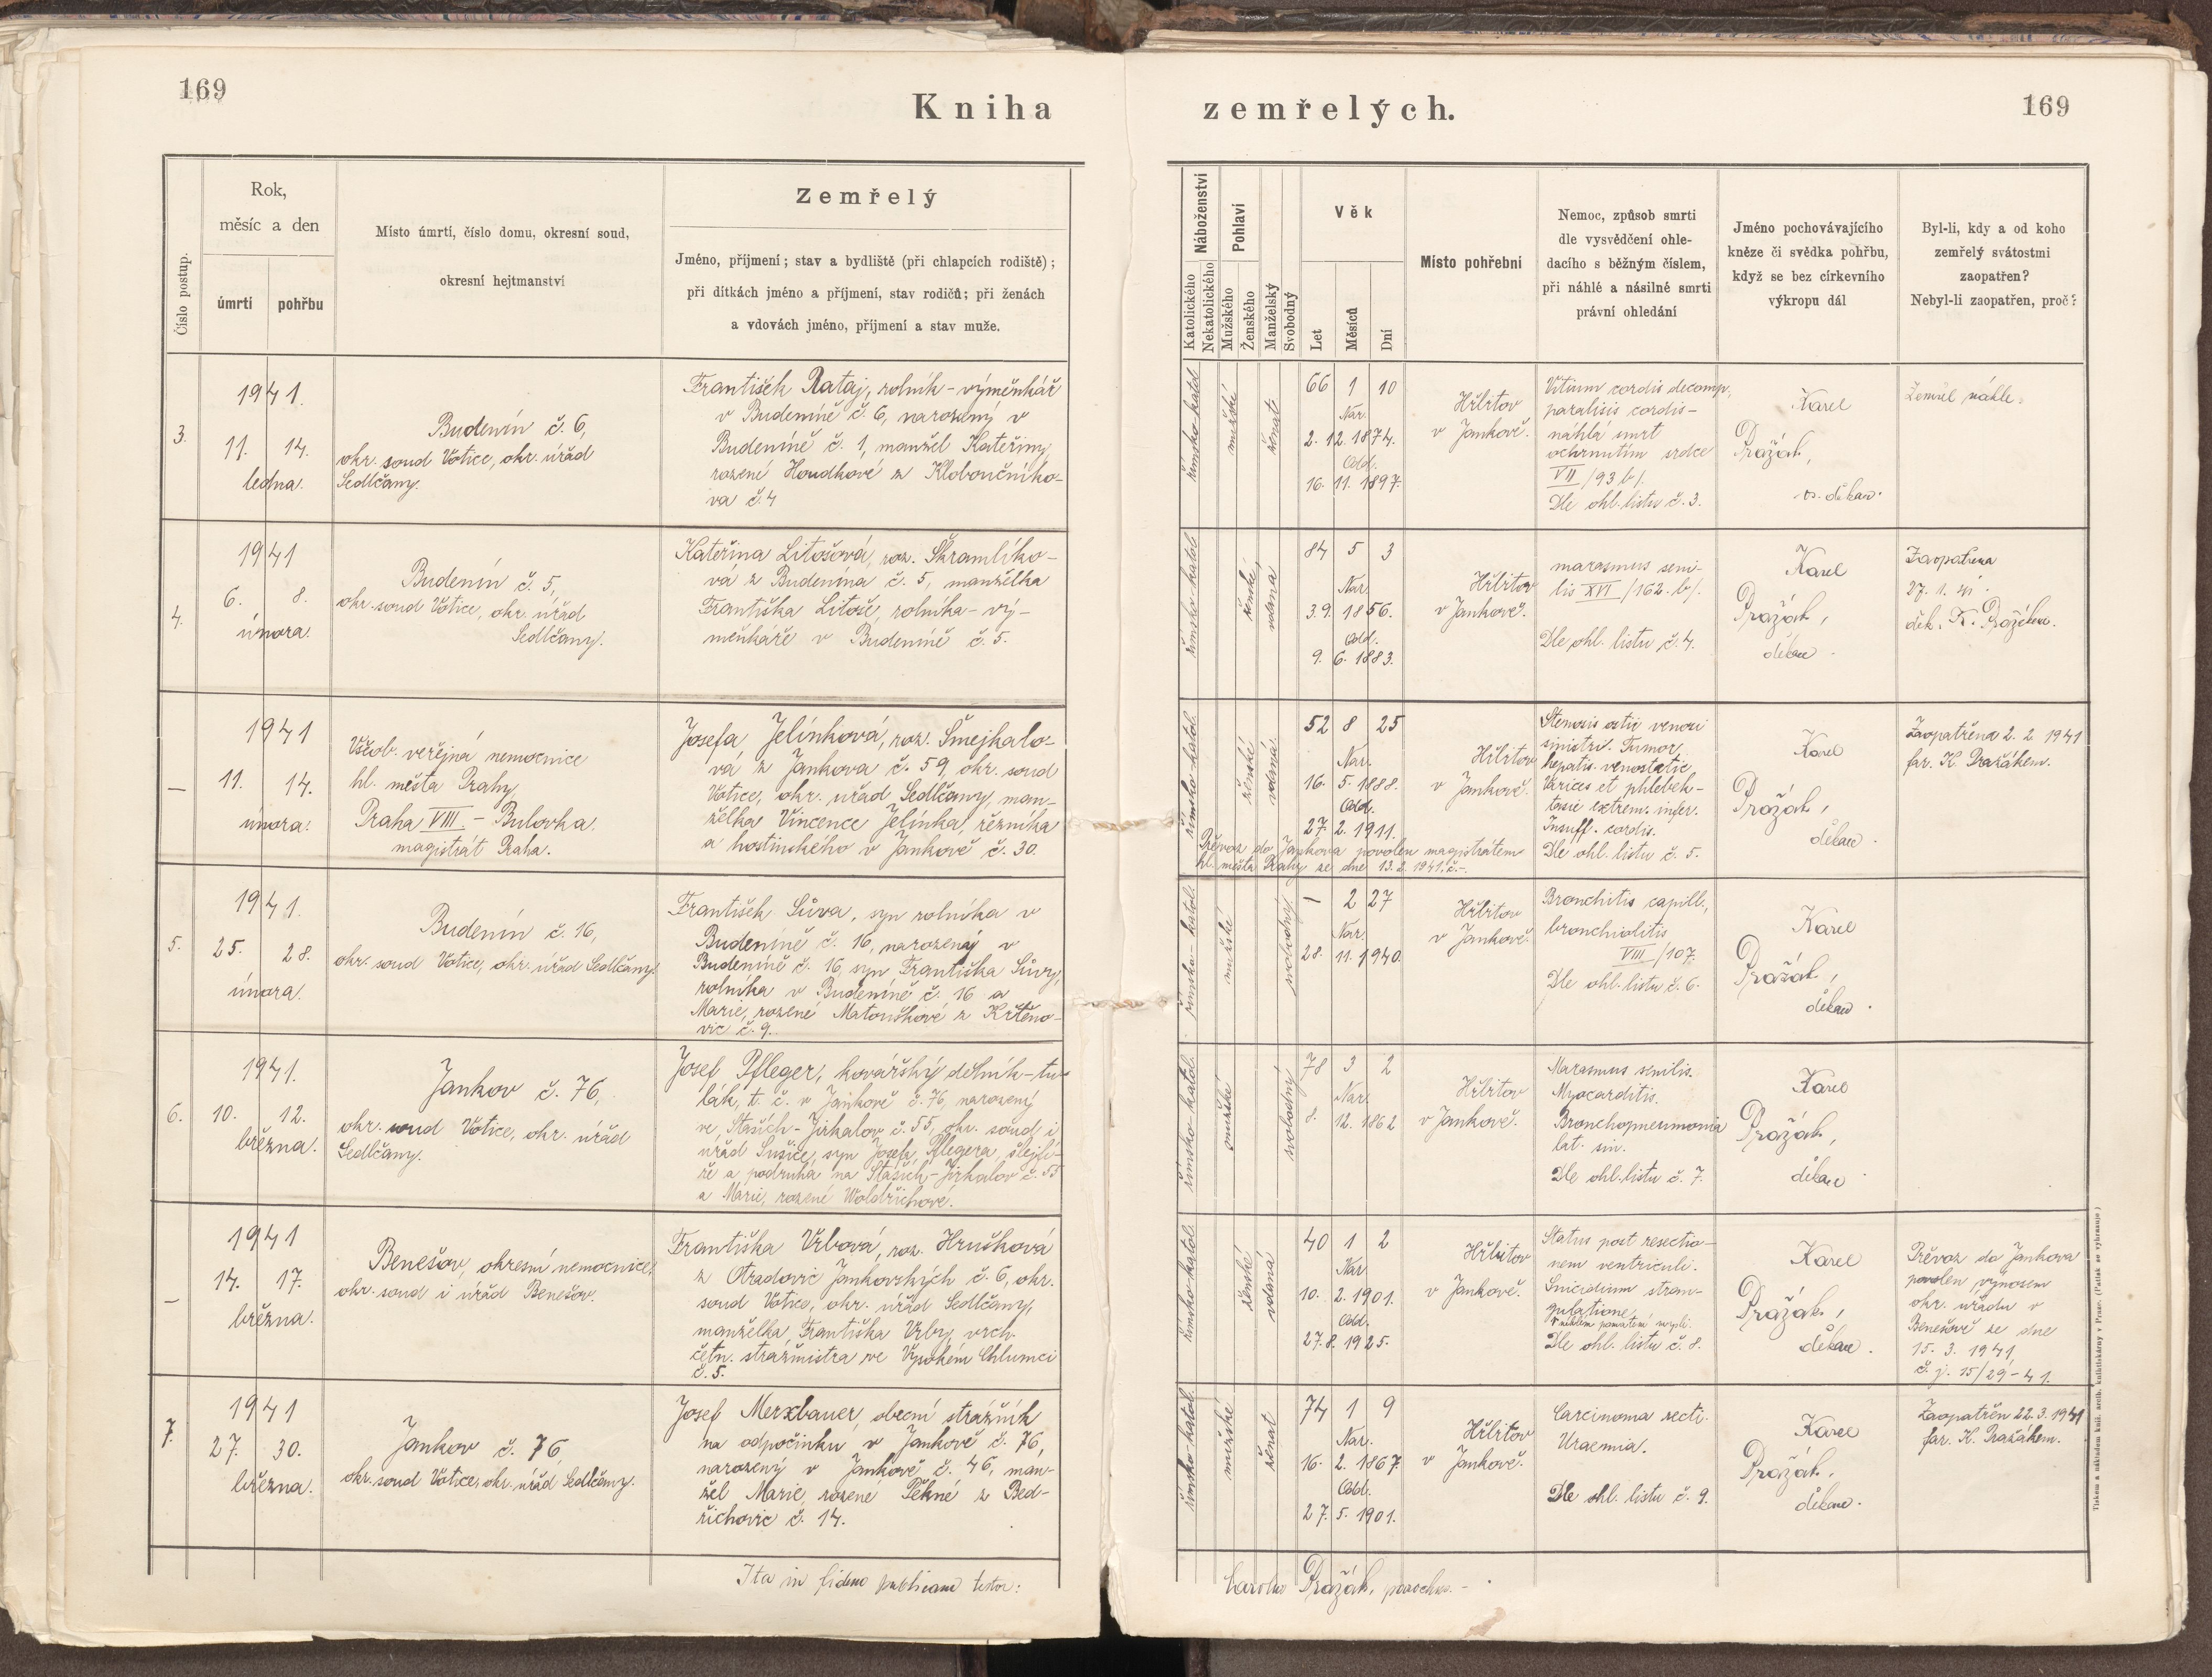 169
Kniha
zemřelých.
169
Číslo postup.
Rok,
měsíc a den
úmrtí
pohřbu
Místo úmrtí, číslo domu, okresní soud,
okresní hejtmanství
Zemřelý
Jméno, příjmení; stav a bydliště (při chlapcích rodiště);
při dítkách jméno a příjmení, stav rodičů; při ženách
a vdovách jméno, příjmení a stav muže.
Náboženství
Katolického
Nekatolického
Pohlaví
Mužského
Ženského
Manželský
Svobodný
Věk
Let
Měsíců
Dní
Místo pohřební
Nemoc, způsob smrti
dle vysvědčení ohle-
dacího s běžným číslem,
při náhlé a násilné smrti
právní ohledání
Jméno pochovávajícího
kněze či svědka pohřbu,
když se bez církevního
výkropu dál
Byl-li, kdy a od koho
zemřelý svátostmi
zaopatřen?
Nebyl-li zaopatřen, proč?
3.
1941.
11. 14.
ledna.
Budenín č. 6,
okr. soud Votice, okr. úřad
Sedlčany.
František Rataj, rolník - výměnkář
v Budeníně č. 6, narozený v
Budeníně č. 1, manžel Kateřiny,
rozené Houdkové z Kloboučníko-
va č. 4
římsko-katol.
mužské
ženat
66 1 10
Nar.
2. 12. 1874.
Odd.
16. 11. 1897.
Hřbitov
v Jankově.
Vitium cordis decomp,
paralisis cordis -
náhlá smrt
ochrnutím srdce
VII /93 b/.
Dle ohl. listu č. 3.
Karel
Pražák,
os. děkan.
Zemřel náhle.
4.
1941
6. 8.
února.
Budenín č. 5,
okr. soud Votice, okr. úřad
Sedlčany.
Kateřina Litošová, roz. Škramlíko-
vá z Budenína č. 5, manželka
Františka Litoše, rolníka - vý-
měnkáře v Budeníně č. 5.
římsko-katol.
ženské
vdaná
84 5 3
Nar.
3. 9. 1856.
Odd.
9. 6. 1883.
Hřbitov
v Jankově.
marasmus seni-
lis XVI /162. b/.
Dle ohl. listu č. 4.
Karel
Pražák,
děkan.
Zaopatřena
27. 1. 41.
děk. K. Pražákem.
—
1941
11. 14.
února.
Všeob. veřejná nemocnice
hl. města Prahy,
Praha VIII. - Bulovka.
magistrát Praha.
Josefa Jelínková, roz. Šmejkalo-
vá z Jankova č. 59, okr. soud
Votice, okr. úřad Sedlčany, man-
želka Vincence Jelínka, řezníka
a hostinského v Jankově č. 30.
římsko-katol.
ženské
vdaná.
52 8 25
Nar.
16. 5. 1888.
Odd.
27. 2. 1911.
Hřbitov
v Jankově.
Stenosis ostii venosi
sinistri. Tumor
hepatis venostatic.
Varices et phlebek-
tasie extrem. infer.
Insuff. cordis.
Dle ohl. listu č. 5.
Karel
Pražák,
děkan.
Zaopatřena 2. 2. 1941
far. K. Pražákem.
Převoz do Jankova povolen magistrátem
hl. města Prahy ze dne 13. 2. 1941. č. -.
5.
1941.
25. 28.
února.
Budenín č. 16,
okr. soud Votice, okr. úřad Sedlčany.
František Sůva, syn rolníka v
Budeníně č. 16, narozený v
Budeníně č. 16, syn Františka Sůvy,
rolníka v Budeníně č. 16 a
Marie, rozené Matouškové z Křtěno-
vic č. 9.
římsko-katol.
mužské
svobodný
1 2 27
Nar.
28. 11. 1940.
Hřbitov
v Jankově.
Bronchitis capill.,
bronchiolitis
VIII /107.
Dle ohl. listu č. 6.
Karel
Pražák,
děkan.
6.
1941.
10. 12.
března.
Jankov č. 76,
okr. soud Votice, okr. úřad
Sedlčany.
Josef Pfleger, kovářský dělník - tu-
lák, t. č. v Jankově č. 76, narozený
ve Staších - Jirkalov č. 55, okr. soud i
úřad Sušice, syn Josefa Pflegera, šlejfí-
ře a podruha na Staších - Jirkalov č. 55
a Marie, rozené Woldřichové.
římsko-katol.
mužské
svobodný
78 3 2
Nar.
8. 12. 1862
Hřbitov
v Jankově.
Marasmus senilis.
Myocarditis.
Bronchopneumonia
lat. sin.
Dle ohl. listu č. 7.
Karel
Pražák,
děkan
—
1941
14. 17.
března.
Benešov, okresní nemocnice,
okr. soud i úřad Benešov.
Františka Vrbová, roz. Hrušková
z Otradovic Jankovských č. 6, okr.
soud Votice, okr. úřad Sedlčany,
manželka Františka Vrby, vrch.
četn. strážmistra ve Vysokém Chlumci
č. 5.
římsko-katol.
ženské
vdaná
40 1 2
Nar.
10. 2. 1901.
Odd.
27. 8. 1925.
Hřbitov
v Jankově.
Status post resectio-
nem ventriculi.
Suicidium stran-
gulatione,
Dle ohl. listu č. 8.
Karel
Pražák,
děkan.
Převoz do Jankova
povolen výnosem
okr. úřadu v
Benešově ze dne
15. 3. 1941,
č. j. 15/29-41.
7.
1941
27. 30.
března.
Jankov č. 76,
okr. soud Votice, okr. úřad Sedlčany.
Josef Merxbauer, obecní strážník
na odpočinku v Jankově č. 76,
narozený v Jankově č. 46, man-
žel Marie, rozené Pěkné z Bed-
řichovic č. 14.
římsko-katol.
mužské
ženat
74 1 9
Nar.
16. 2. 1867.
Odd.
27. 5. 1901.
Hřbitov
v Jankově.
Carcinoma recti.
Uraemia.
Dle ohl. listu č. 9.
Karel
Pražák,
děkan.
Zaopatřen 22. 3. 1941
far. K. Pražákem.
Ita in fidem publicam testor:
Carolus Pražák, parochus. -